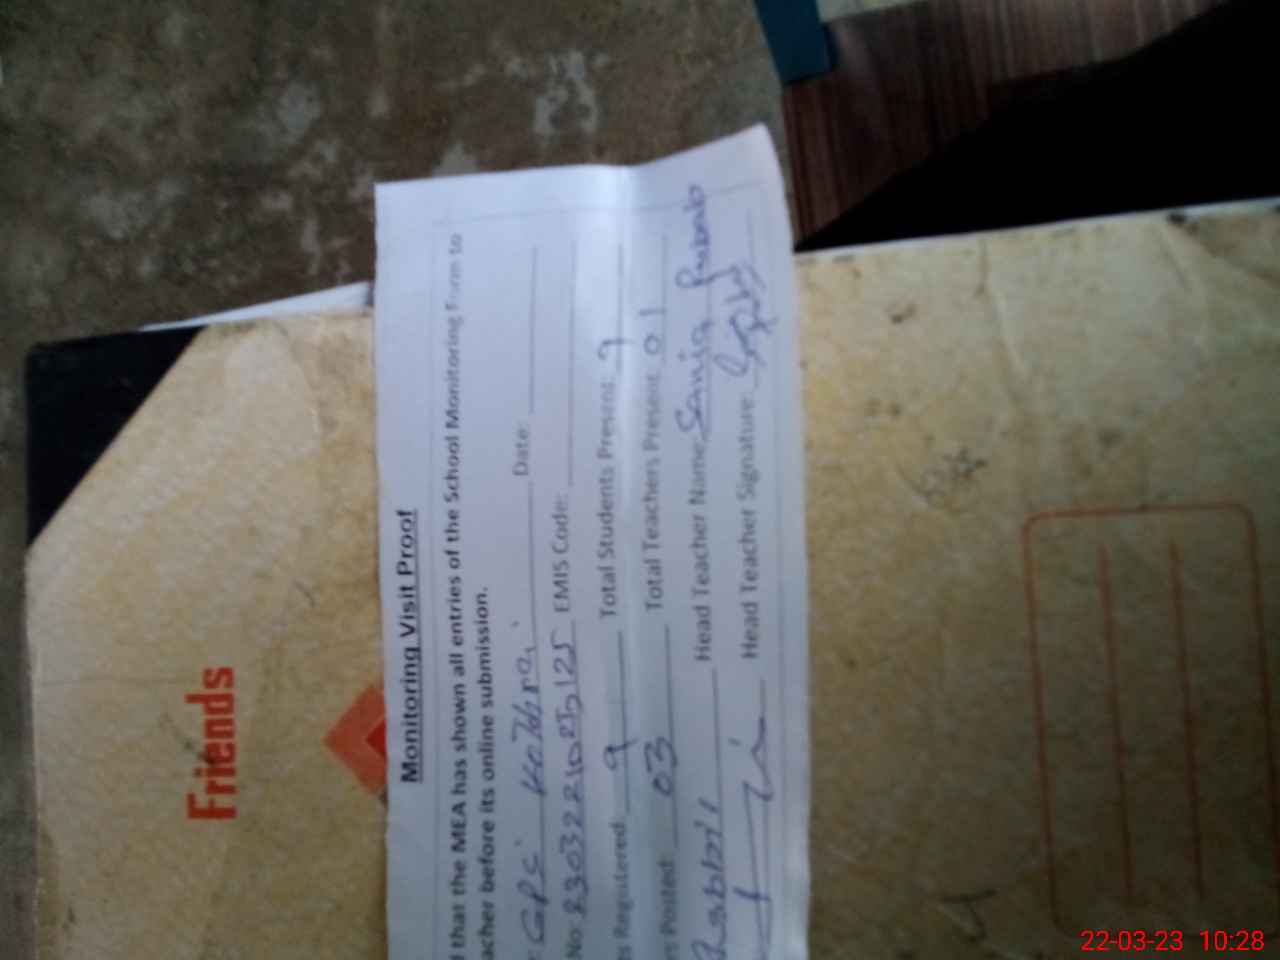 Friends
Monitoring Visit Proof
that the MEA has shown all entries of the School Monitoring Form to
acher before its online submission.
GPS Date:
No: EMIS Code:
s Registered: 9 Total Students Present: 9
rs Posted: 03 Total Teachers Present 01
Head Teacher Name: Sania
Head Teacher Signature:
22-03-23 10:28